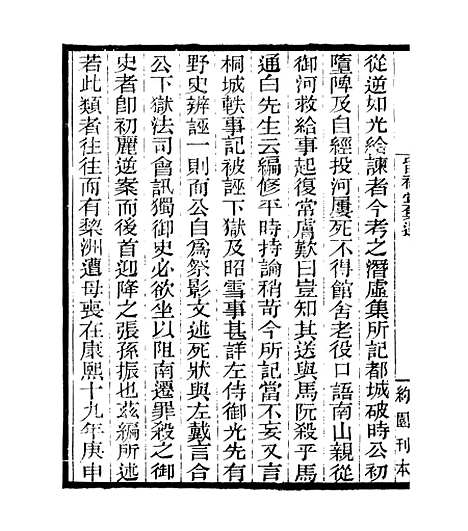 從逆如光給諫者今考之潛虛集所記都城破時公初
墮陴及自經投河屢死不得館舍老役口語南山親從
御河救給事起復常膚歎曰豈知其送與馬阮殺乎馬
通白先生云編修平時持論稍苛今所記當不妄又言
桐城軼事記被誣下獄及昭雪事甚詳左侍御光先有
野史辨誣一則而公自爲祭影文述死狀與左戴言合
公下獄法司會訊獨御史必欲坐以阻南遷罪殺之御
史者卽初麗逆案而後首迎降之張孫振也茲編所述
若此類者往往而有棃洲遭母喪在康熙十九年庚申
約園刊本